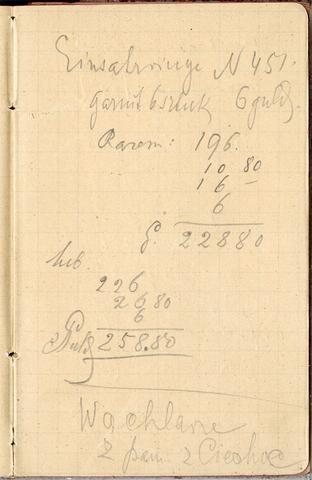 Einsatzringe N 451.
garnit 6 sztuk 6 guld.
Razem: 196.
10 80
16 –
6
g. 228 80
lub.
226
26 80
6
258.80
Wachlarze
z pani z Ciecho